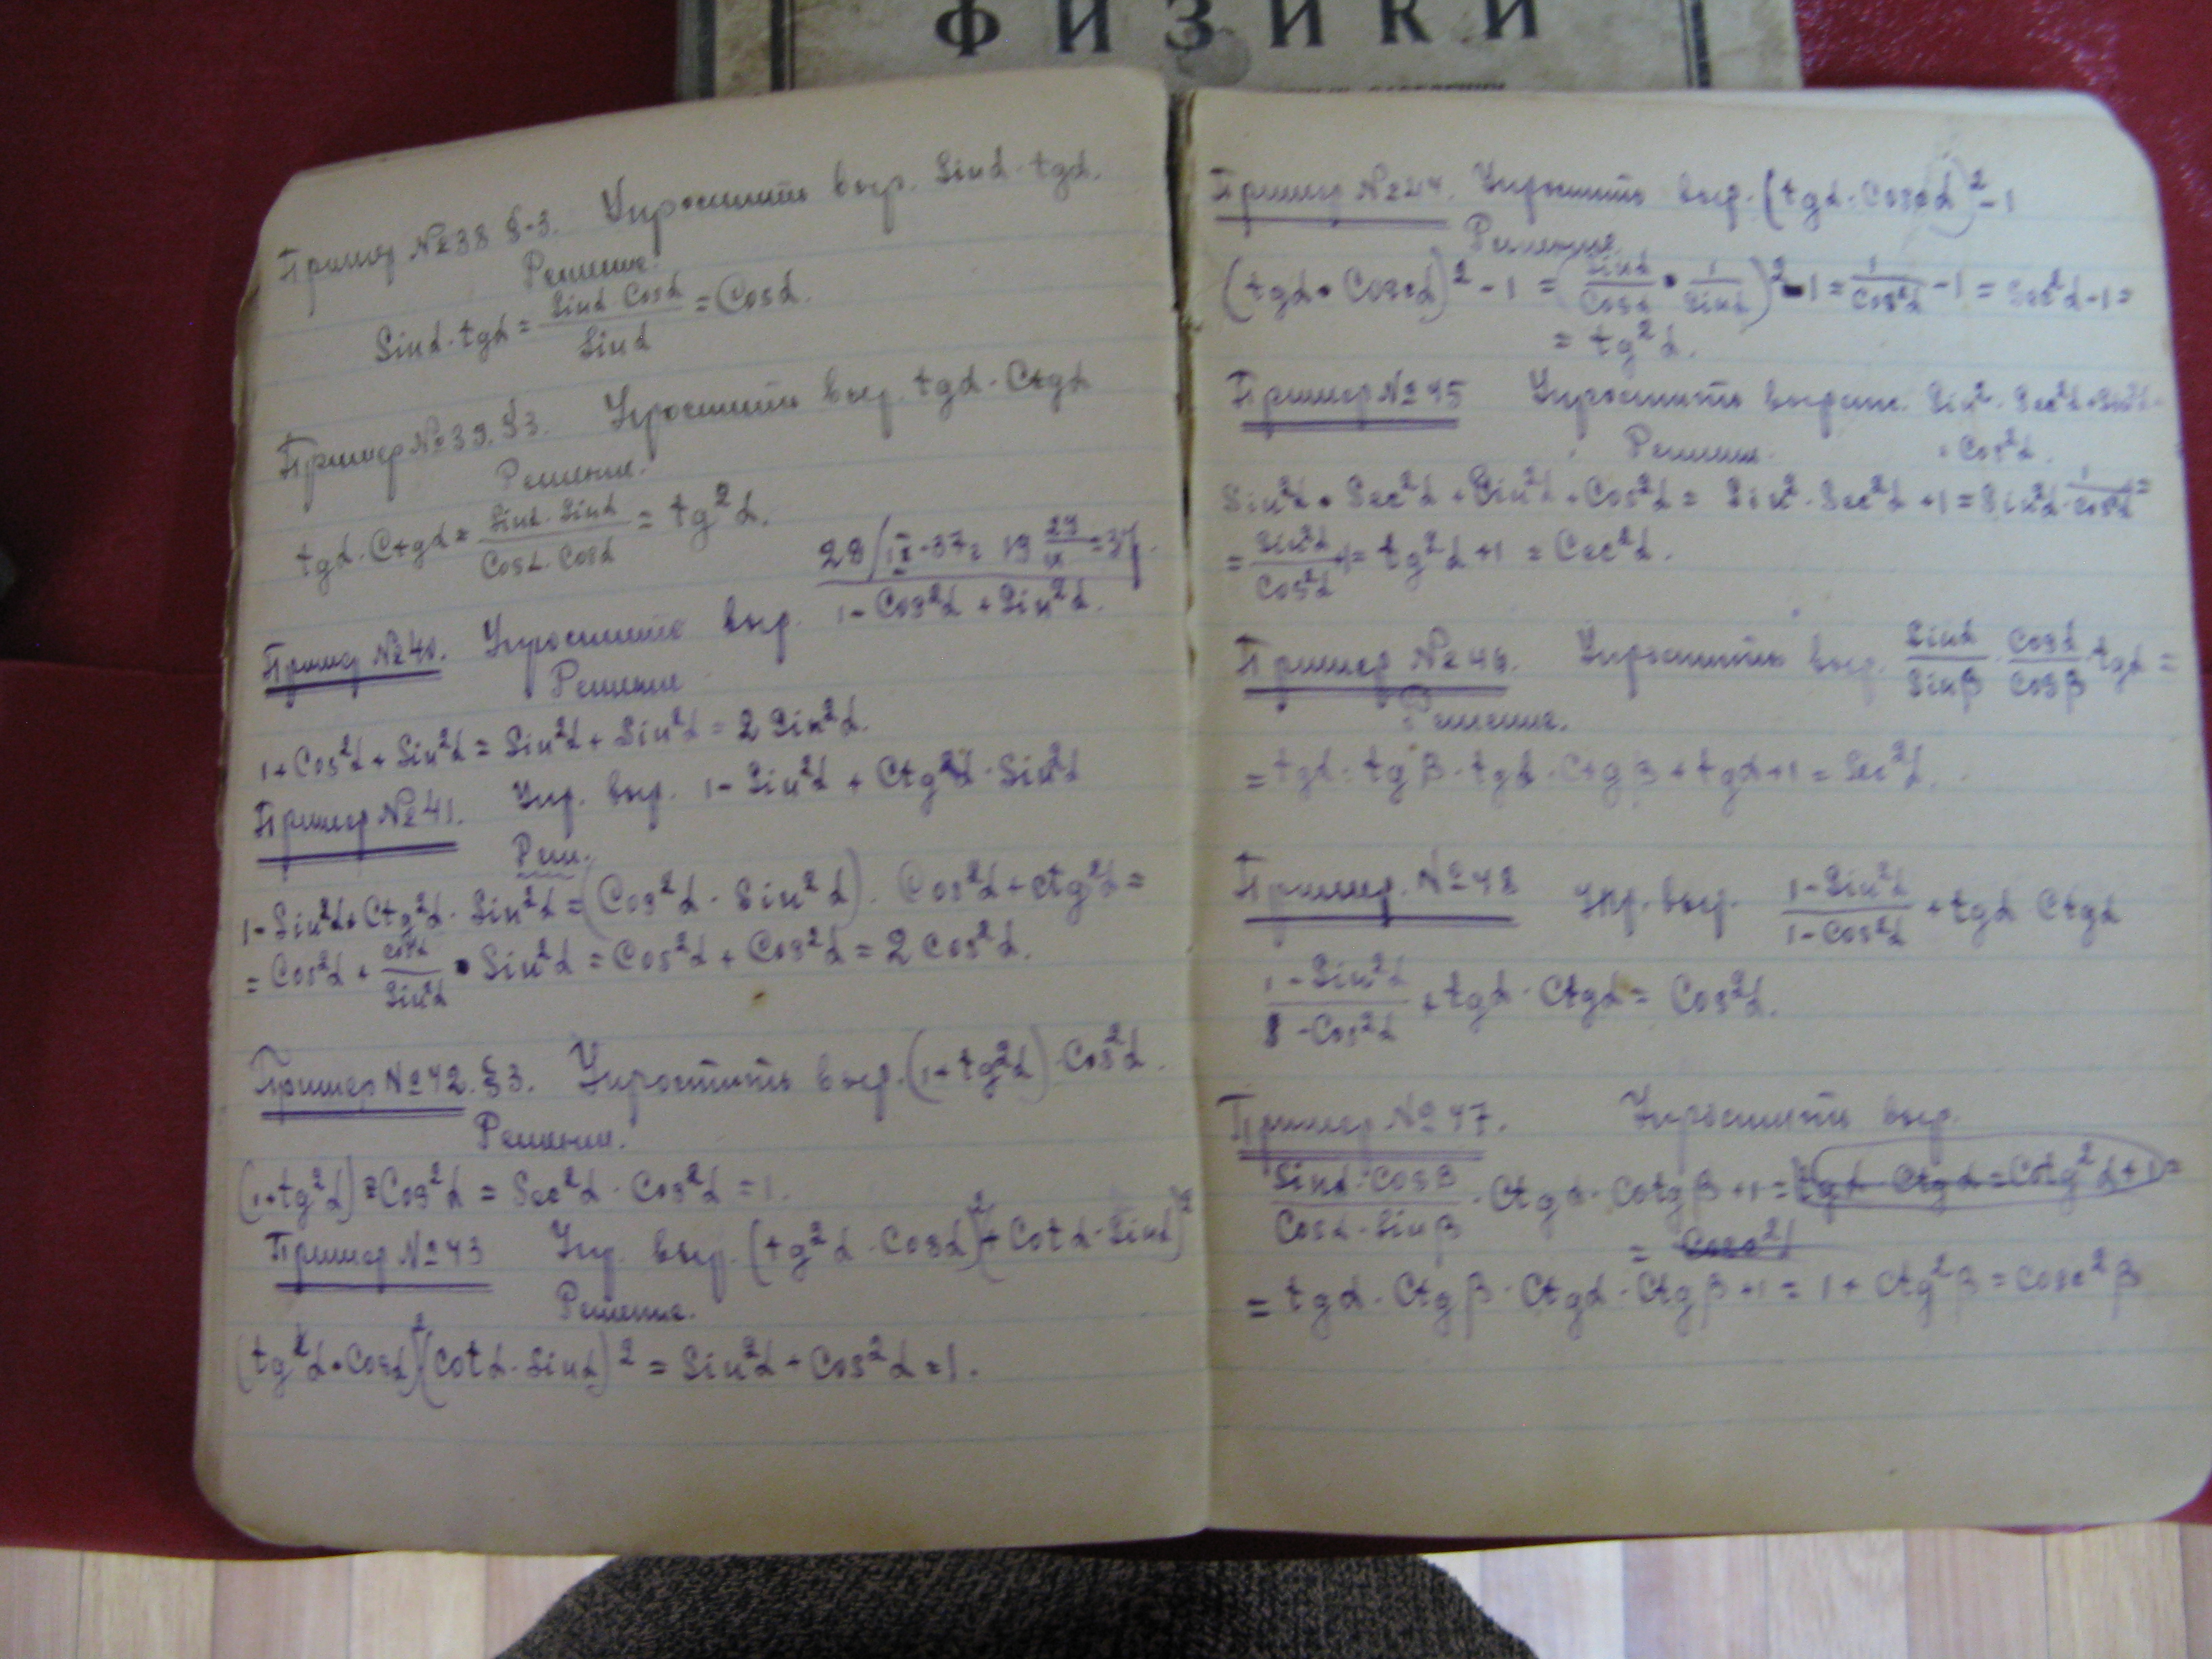 ФИЗИКИ
Пример №38 §-3. Упростить выр. Sinα·tgα.
Решение.
Sinα·tgα = Sinα·Cosα / Sinα = Cosα.
Пример №39. §3. Упростить выр. tgα·Ctgα
Решение.
tgα·Ctgα = Sinα·Sinα / Cosα·Cosα = tg²α.
28/IX-37г.
Пример №40. Упростить выр. 1-Cos²α+Sin²α.
Решение
1+Cos²α+Sin²α = Sin²α+Sin²α = 2Sin²α.
Пример №41. Упр. выр. 1-Sin²α + Ctg²α·Sin²α
Реш.
1-Sin²α+Ctg²α·Sin²α = (Cos²α·Sin²α)·Cos²α+ctg²α =
= Cos²α + Cos²α / Sin²α · Sin²α = Cos²α + Cos²α = 2Cos²α.
Пример №42. §3. Упростить выр. (1+tg²α)·Cos²α.
Решение.
(1+tg²α)=Cos²α = Sec²α·Cos²α = 1.
Пример №43 Упр. выр. (tg²α·Cosα)²+(Cotα·Sinα)²
Решение.
(tg²α·Cosα)²(Cotα·Sinα)² = Sin²α+Cos²α=1.
Пример №44. Упростить выр. (tgα·Cosecα)²-1
Решение.
(tgα·Cosecα)²-1 = (Sinα / Cosα · 1 / Sinα)²-1 = 1 / Cos²α -1 = Sec²α-1=
= tg²α.
Пример №45 Упростить выраж. Sin²·Sec²α+Sin²α+
+Cos²α.
Решение.
Sin²α·Sec²α+Sin²α+Cos²α = Sin²·Sec²α+1=Sin²α·1 / Cos²α=
= Sin²α / Cos²α +1= tg²α+1 = Cec²α.
Пример №46. Упростить выр. Sinα / Sinβ · Cosα / Cosβ · tgα =
Решение.
= tgα·tgβ·tgα·Ctgβ+tgα+1=Sec²α.
Пример №48 Упр. выр. 1-Sin²α / 1-Cos²α +tgα Ctgα
1-Sin²α / 1-Cos²α +tgα·Ctgα = Cos²α.
Пример №47. Упростить выр.
Sinα·Cosβ / Cosα·Sinβ ·Ctgα·Cotgβ+1=tgα·Ctgα=Cotg²α+1=
= Cosec²α
= tgα·Ctgβ·Ctgα·Ctgβ+1=1+Ctg²β=Cosec²β